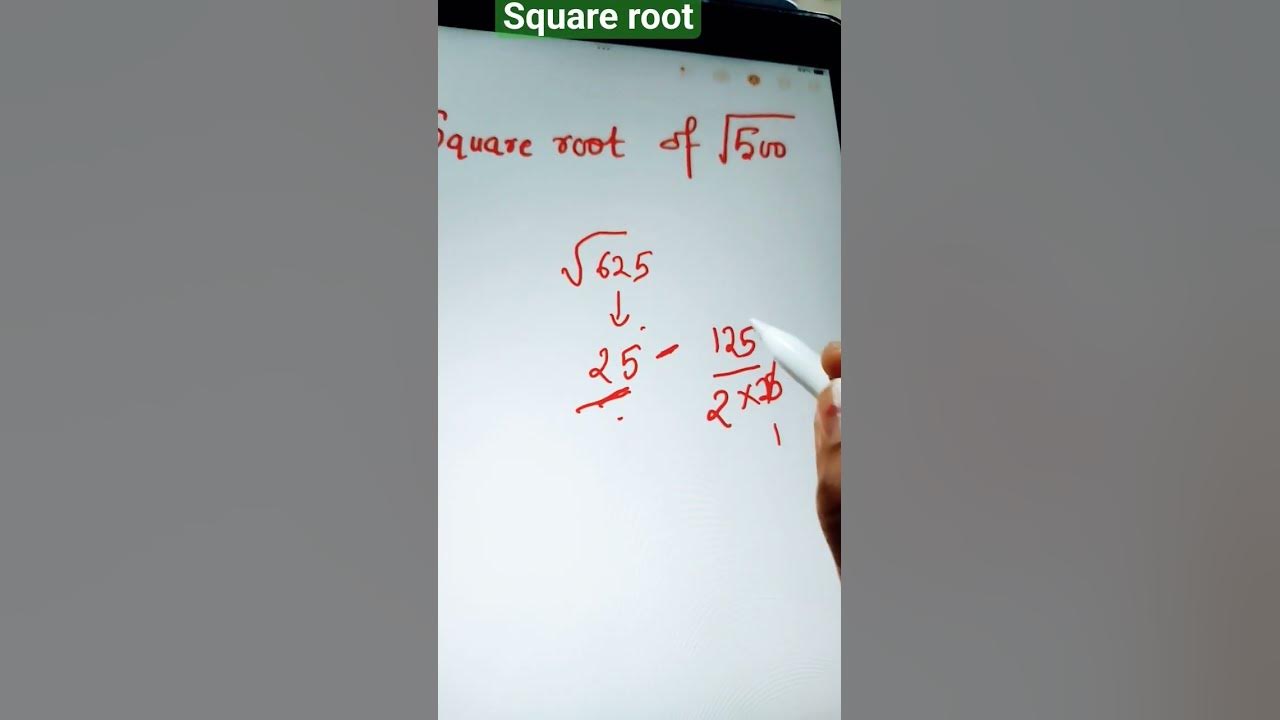 Square root
Square root of √500
√625
↓
25 - 125/2×25
1